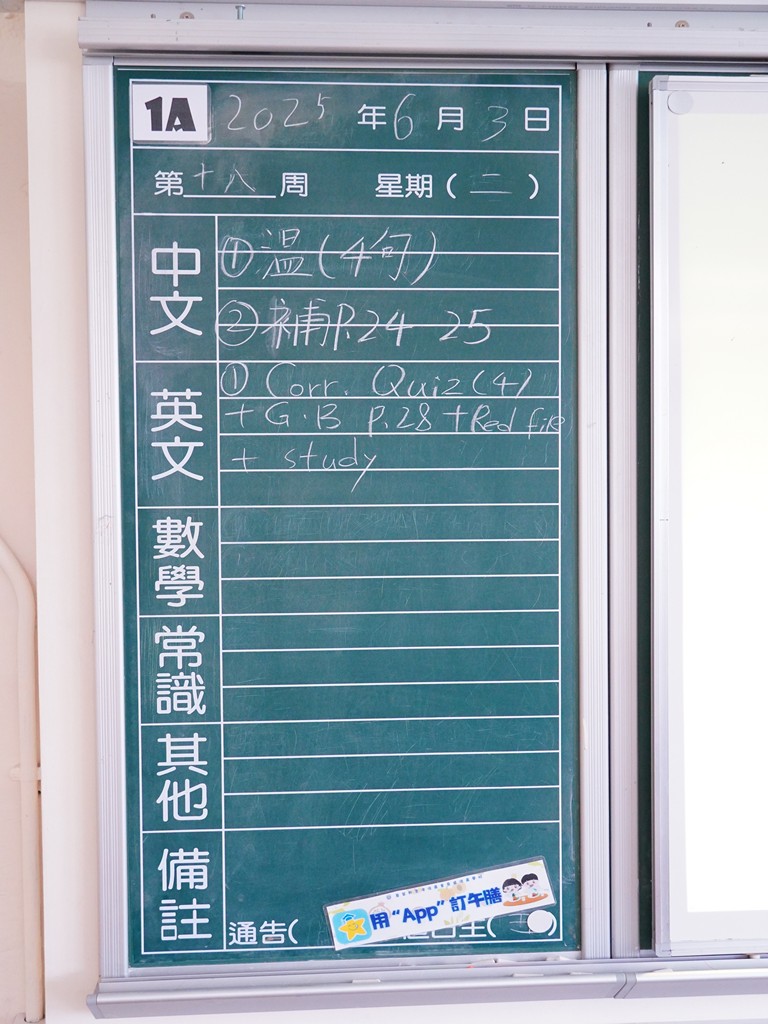 1A 2025 年 6 月 3 日
第 十八 周 星期 ( 二 )
中文
① 溫 (4句)
② 補 P.24 25
英文
① Corr. Quiz (4)
+ G.B P.28 + Red file
+ study
數學
常識
其他
備註
用 "App" 訂午膳
通告(